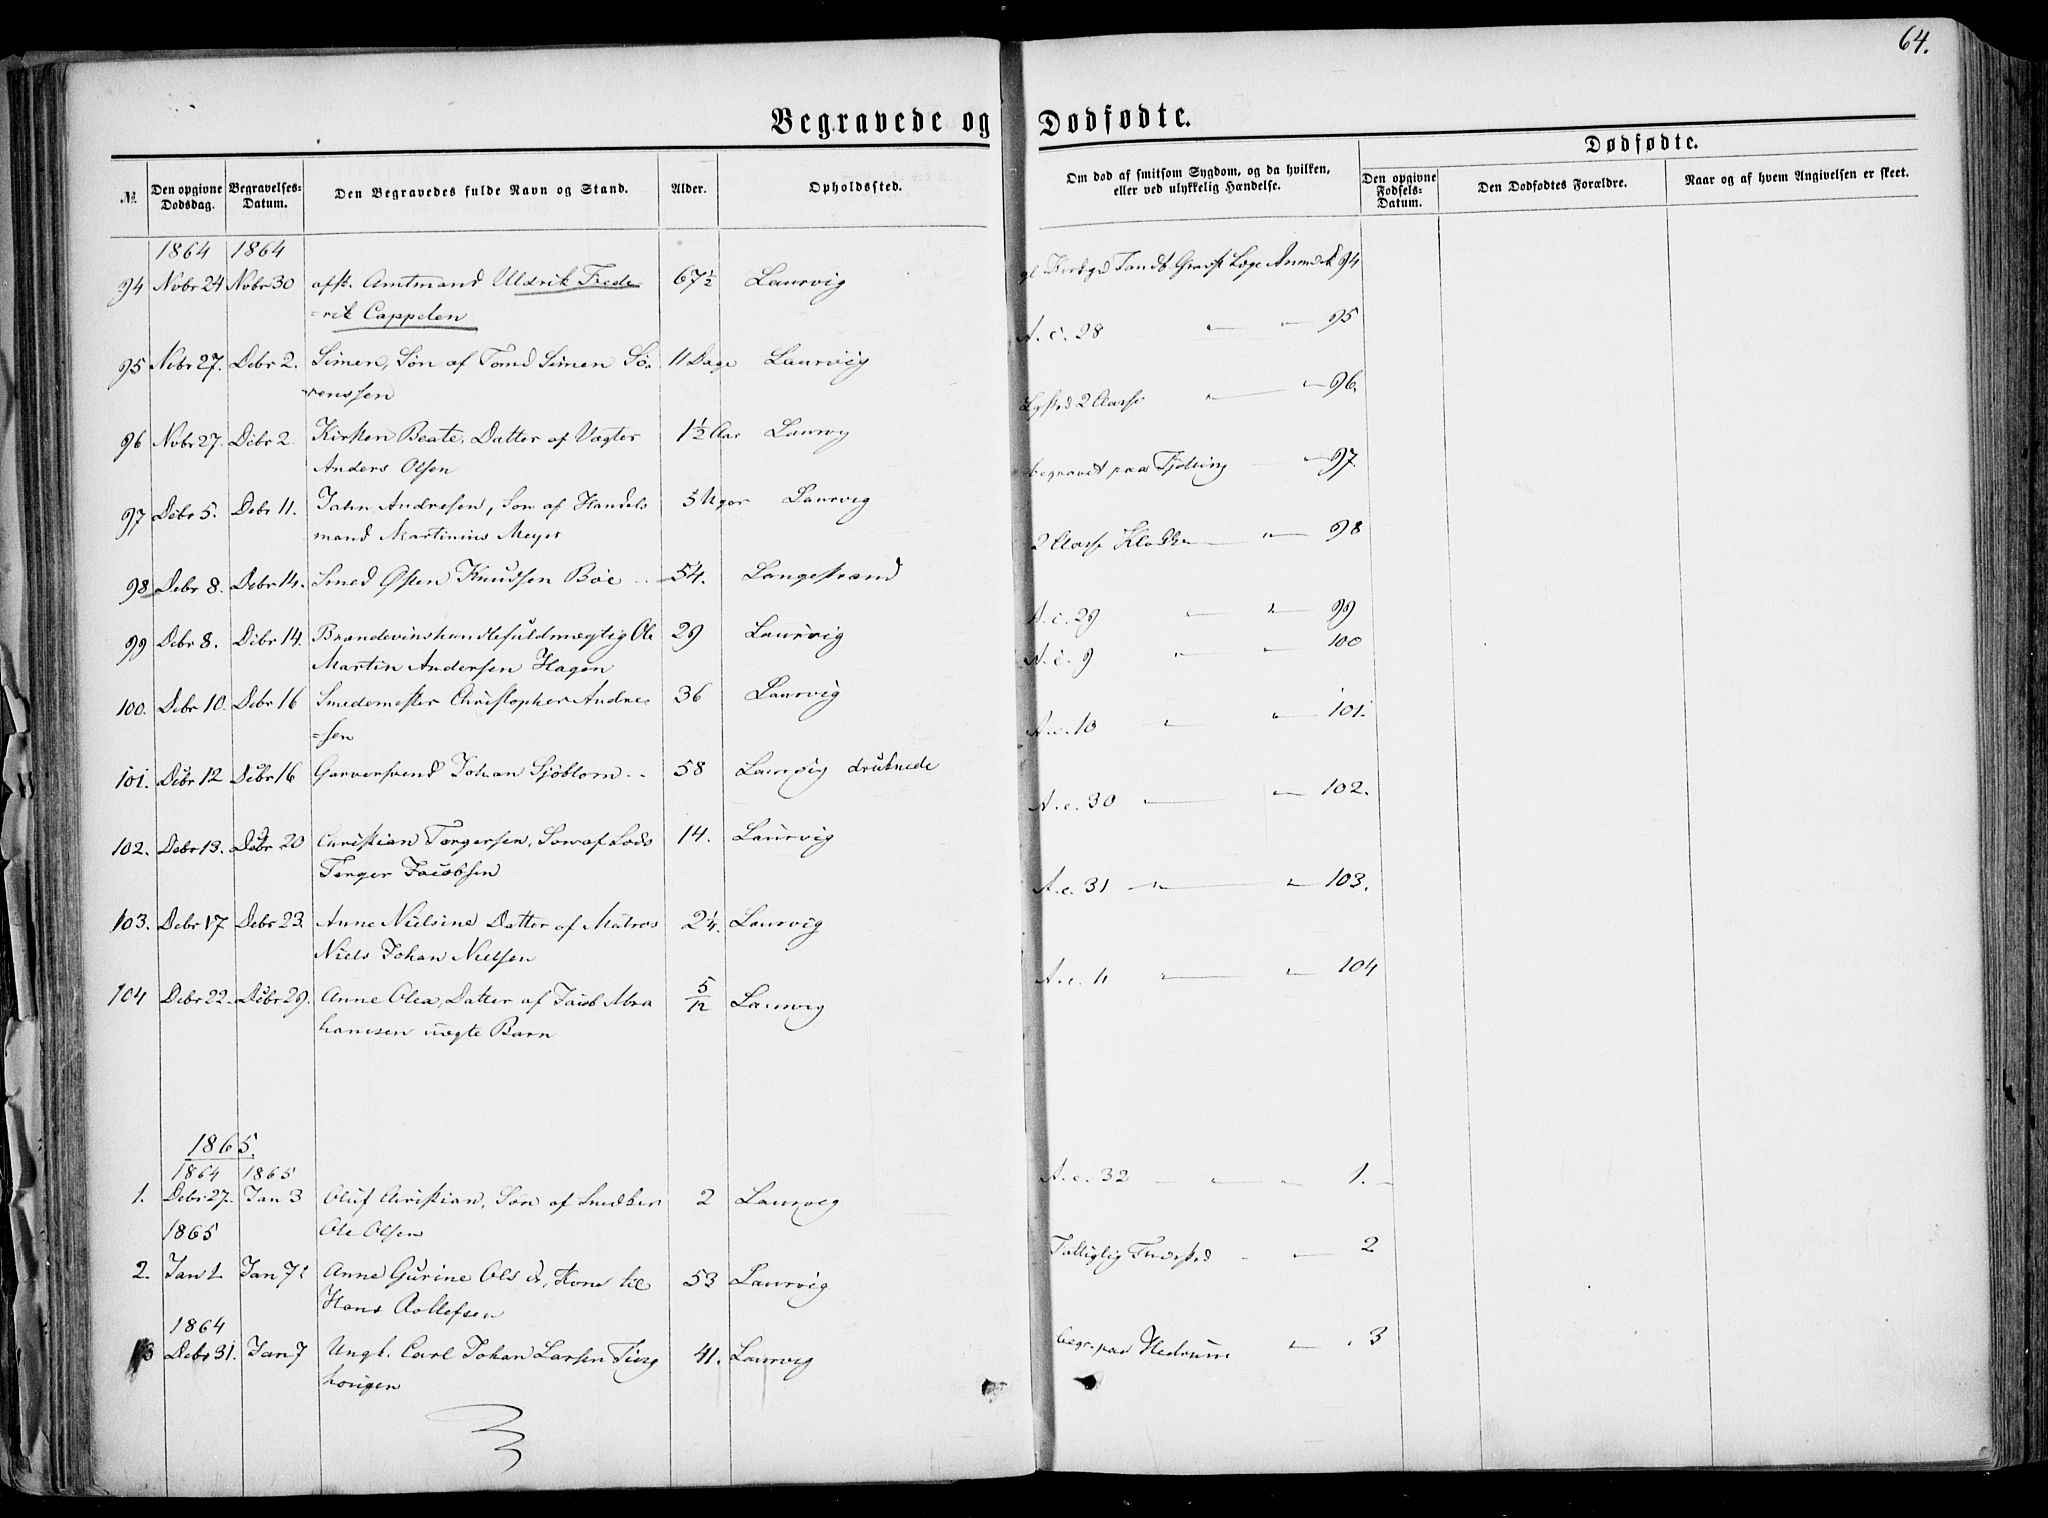 64.
Begravede og Dødfødte.
Dødfødte.
№ Den opgivne Dødsdag. Begravelses-Datum. Den Begravedes fulde Navn og Stand. Alder. Opholdssted. Om død af smitsom Sygdom, og da hvilken, eller ved ulykkelig Hændelse. Den opgivne Fødsels-Datum. Den Dødfødtes Forældre. Naar og af hvem Angivelsen er skeet.
1864 1864
94 Nvbr 24 Nvbr 30 afsk. Amtmand Uldrik Frede 67½ Laurvig 94
=rik Cappelen
95 Nvbr 27. Debr 2. Simen, Søn af Tomd Simen Sö- 11 Dage Laurvig A. c. 28 " " 95
renssen
96 Nvbr 27. Debr 2 Kirsten Beate, Datter af Vægter 1½ Aar Laurvig 2 Classe " " 96.
Anders Olsen
97 Debr 5. Debr 11. Jahn Andresen, Søn af Handels 5 Uger Laurvig begravet paa Tjølling " 97
mand Martinius Meyer
98 Debr 8. Debr 14. Smed Østen Knudsen Böe 54. Langestrand 2 Classe " 98
99 Debr 8. Debr 14. Brændevinshandlefuldmægtig Ole 29 Laurvig A. c. 29 " " 99
Martin Andersen Hagen
100. Debr 10. Debr 16 Smedemester Christopher Andre 36 Laurvig A. c. 9 " " 100
=sen
101. Debr 12 Debr 16 Garversvend Johan Sjöblom 58 Laurvig druknede A. c. 10 " " 101.
102. Debr 13. Debr 20 Christian Torgersen, Søn af Lods 14. Laurvig A. c. 30 " " 102.
Torger Jacobsen
103. Debr 17 Debr 23. Anne Nielsine Datter af Matros 2¼. Laurvig A. c. 31 " " 103.
Niels Johan Nielsen
104 Debr 22. Debr 29. Anne Olea, Datter af Jacob Abra 5/12 Laurvig A. c. 11 " " 104
hamsen uægte Barn
1865.
1864 1865
1. Debr 27. Jan 3 Oluf Christian, Søn af Snedker 2 Laurvig A. c. 32 " " " 1.
Ole Olsen
1865
2. Jan 1. Jan 7 Anne Gurine Olsd., Kone til 53 Laurvig " 2
Hans Rollefsen
1864
3 Debr 31. Jan 7 Ungk. Carl Johan Larsen Ting 41. Laurvig begr. paa Hedrum " 3
hougen